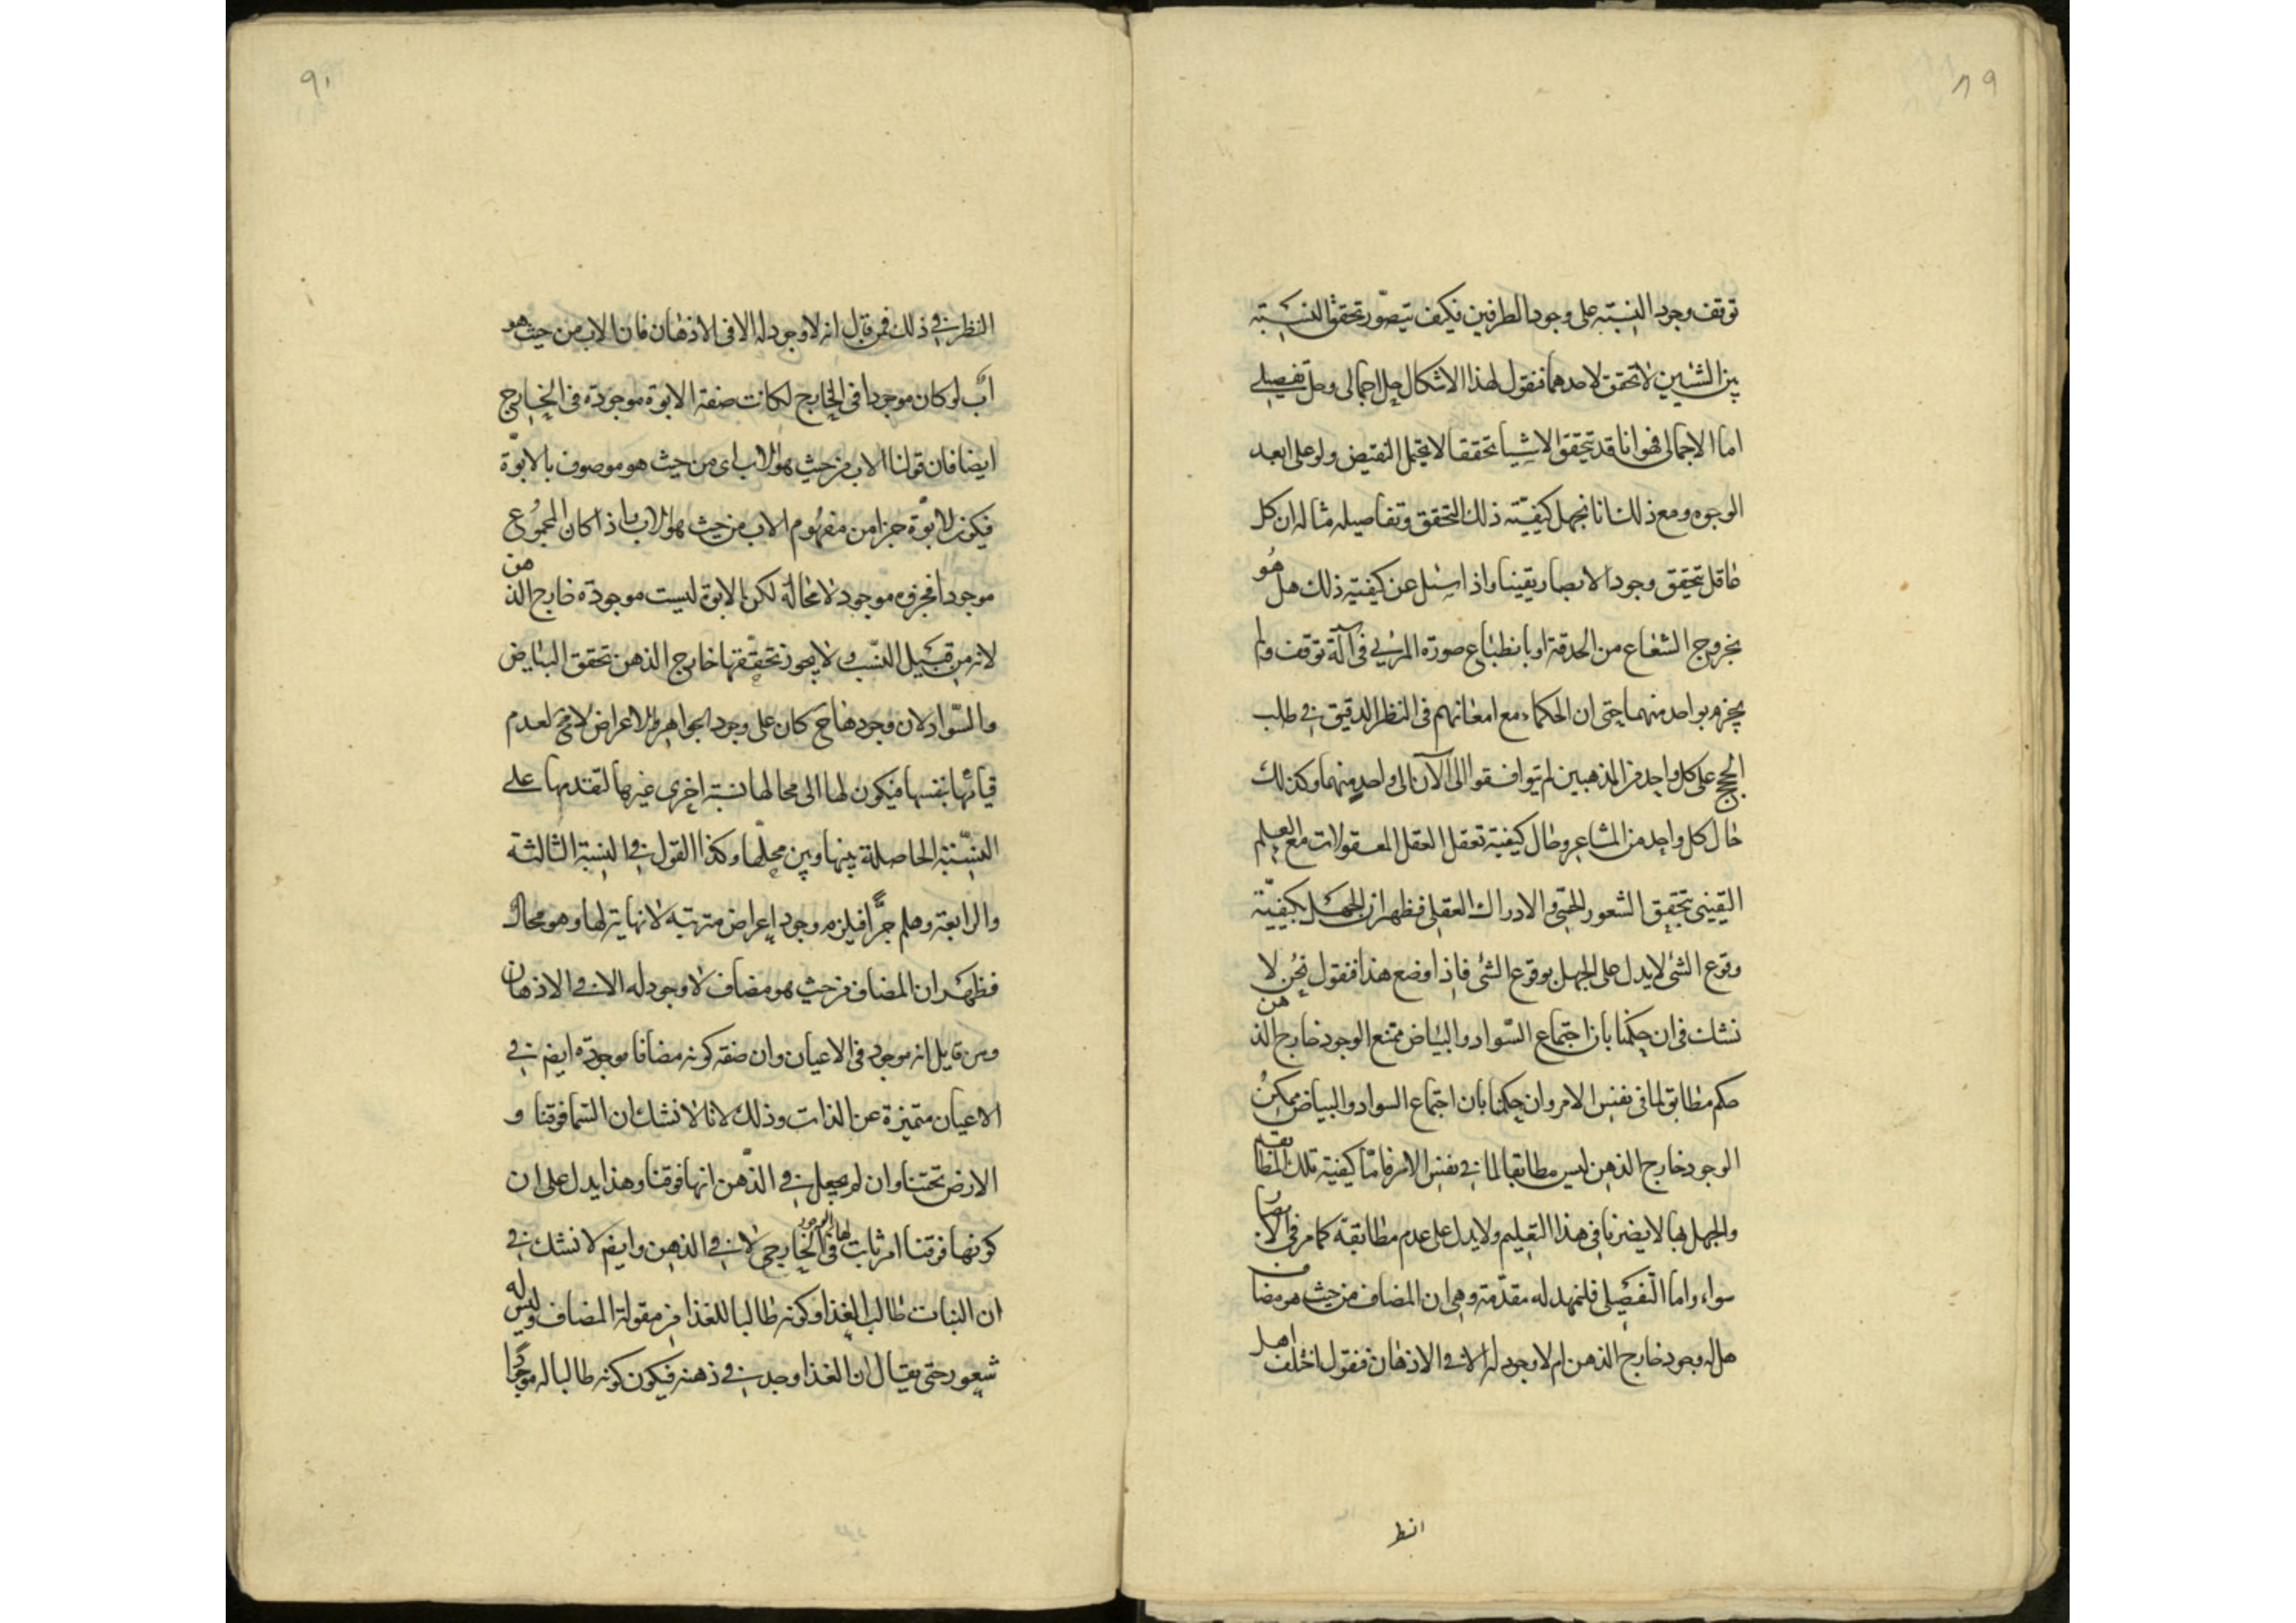 ٨٩
توقف وجود النسبته على وجود الطرفين فكيف يتصوّر تحقق النسبته
بين الشيئين لا تحقق لاحدهما فنقول لهذا الاشكال حل اجمالى وحل تفصيلے
اما الاجمالى فهو انا قد نتحقق الاشيا تحققا لا يحتمل النقيض ولو على ابعد
الوجوه ومع ذلك فانا نجهل كيفيّته ذلك التحقق وتفاصيله مثاله ان كل
عاقل يتحقق وجود الابصار يقينا واذا سئل عن كيفيته ذلك هل هو
بخروج الشعاع من الحدقة او بانطباع صورة المرئي فى آلة توقف ولم
يجزم بواحد منهما حتى ان الحكماء مع امعانهم فى النظر الدقيق في طلب
الحجج على كل واحد من المذهبين لم يتوافقوا الى الآن الى واحد منهما وكذلك
حال كل واحد من المشاعر وحال كيفية تعقل العقل المعقولات مع العلم
اليقينى بتحقق الشعور الحسى والادراك العقلى فظهر ان الجهل بكيفيّة
وقوع الشئ لا يدل على الجهل بوقوع الشئ فاذا وضع هذا فنقول نحن لا
نشك فى ان حكمنا بان اجتماع السّواد والبياض ممتنع الوجود خارج الذهن
حكم مطابق لما فى نفس الامر وان حكمنا بان اجتماع السواد والبياض ممكن
الوجود خارج الذهن ليس مطابقا لما في نفس الامر فامّا كيفية تلك المطابقه
والجهل بها لا يضرنا فى هذا التعليم ولا يدل على عدم مطابقة كما مر فى الابصار
سواء واما التفصيلى فلنمهد له مقدّمة وهى ان المضاف من حيث هو مضاف
هل له وجود خارج الذهن ام لا وجود له الا في الاذهان فنقول اختلف اهل
النظ
٩٠
النظر في ذلك فمن قايل انه لا وجود له الا فى الاذهان فان الاب من حيث هو
اب لو كان موجودا فى الخارج لكانت صفة الابوة موجودة فى الخارج
ايضا فان قولنا الاب من حيث هو الاب اى من حيث هو موصوف بالابوّة
فيكون الابوّة جزا من مفهوم الاب من حيث هو الاب فاذا كان المجموع
موجودا فجزوه موجود لا محالة لكن الابوة ليست موجودة خارج الذهن
لانه من قبيل النسب ولا يجوز تحققها خارج الذهن تحقق البياض
والسّواد لان وجودها ح كان على وجود الجواهر والاعراض لا مح لعدم
قيامها بنفسها فيكون لها الى محالها نسبة اخرى غيرها لتقدمها على
النسبة الحاصلة بينها وبين محلّها وكذا القول في النسبة الثالثة
والرابعة وهلم جرًّا فيلزم وجود اعراض مترتبة لا نهاية لها وهو محال
فظهر ان المضاف من حيث هو مضاف لا وجود له الا في الاذهان
ومن قايل انه موجود فى الاعيان وان صفة كونه مضافا موجودة ايضم في
الاعيان متميزة عن الذات وذلك لانا لا نشك ان السّما فوقنا و
الارض تحتنا وان لم يجعل في الذّهن انها فوقنا وهذا يدل على ان
كونها فوقنا امر ثابت لها فى الخارجى لا في الذهن وايضم لا نشك في
ان النبات طالب للغذا وكونه طالبا للغذا من مقولة المضاف وليس له
شعور حتى يقال ان الغذا وجد في ذهنه فيكون كونه طالبا له موجودا